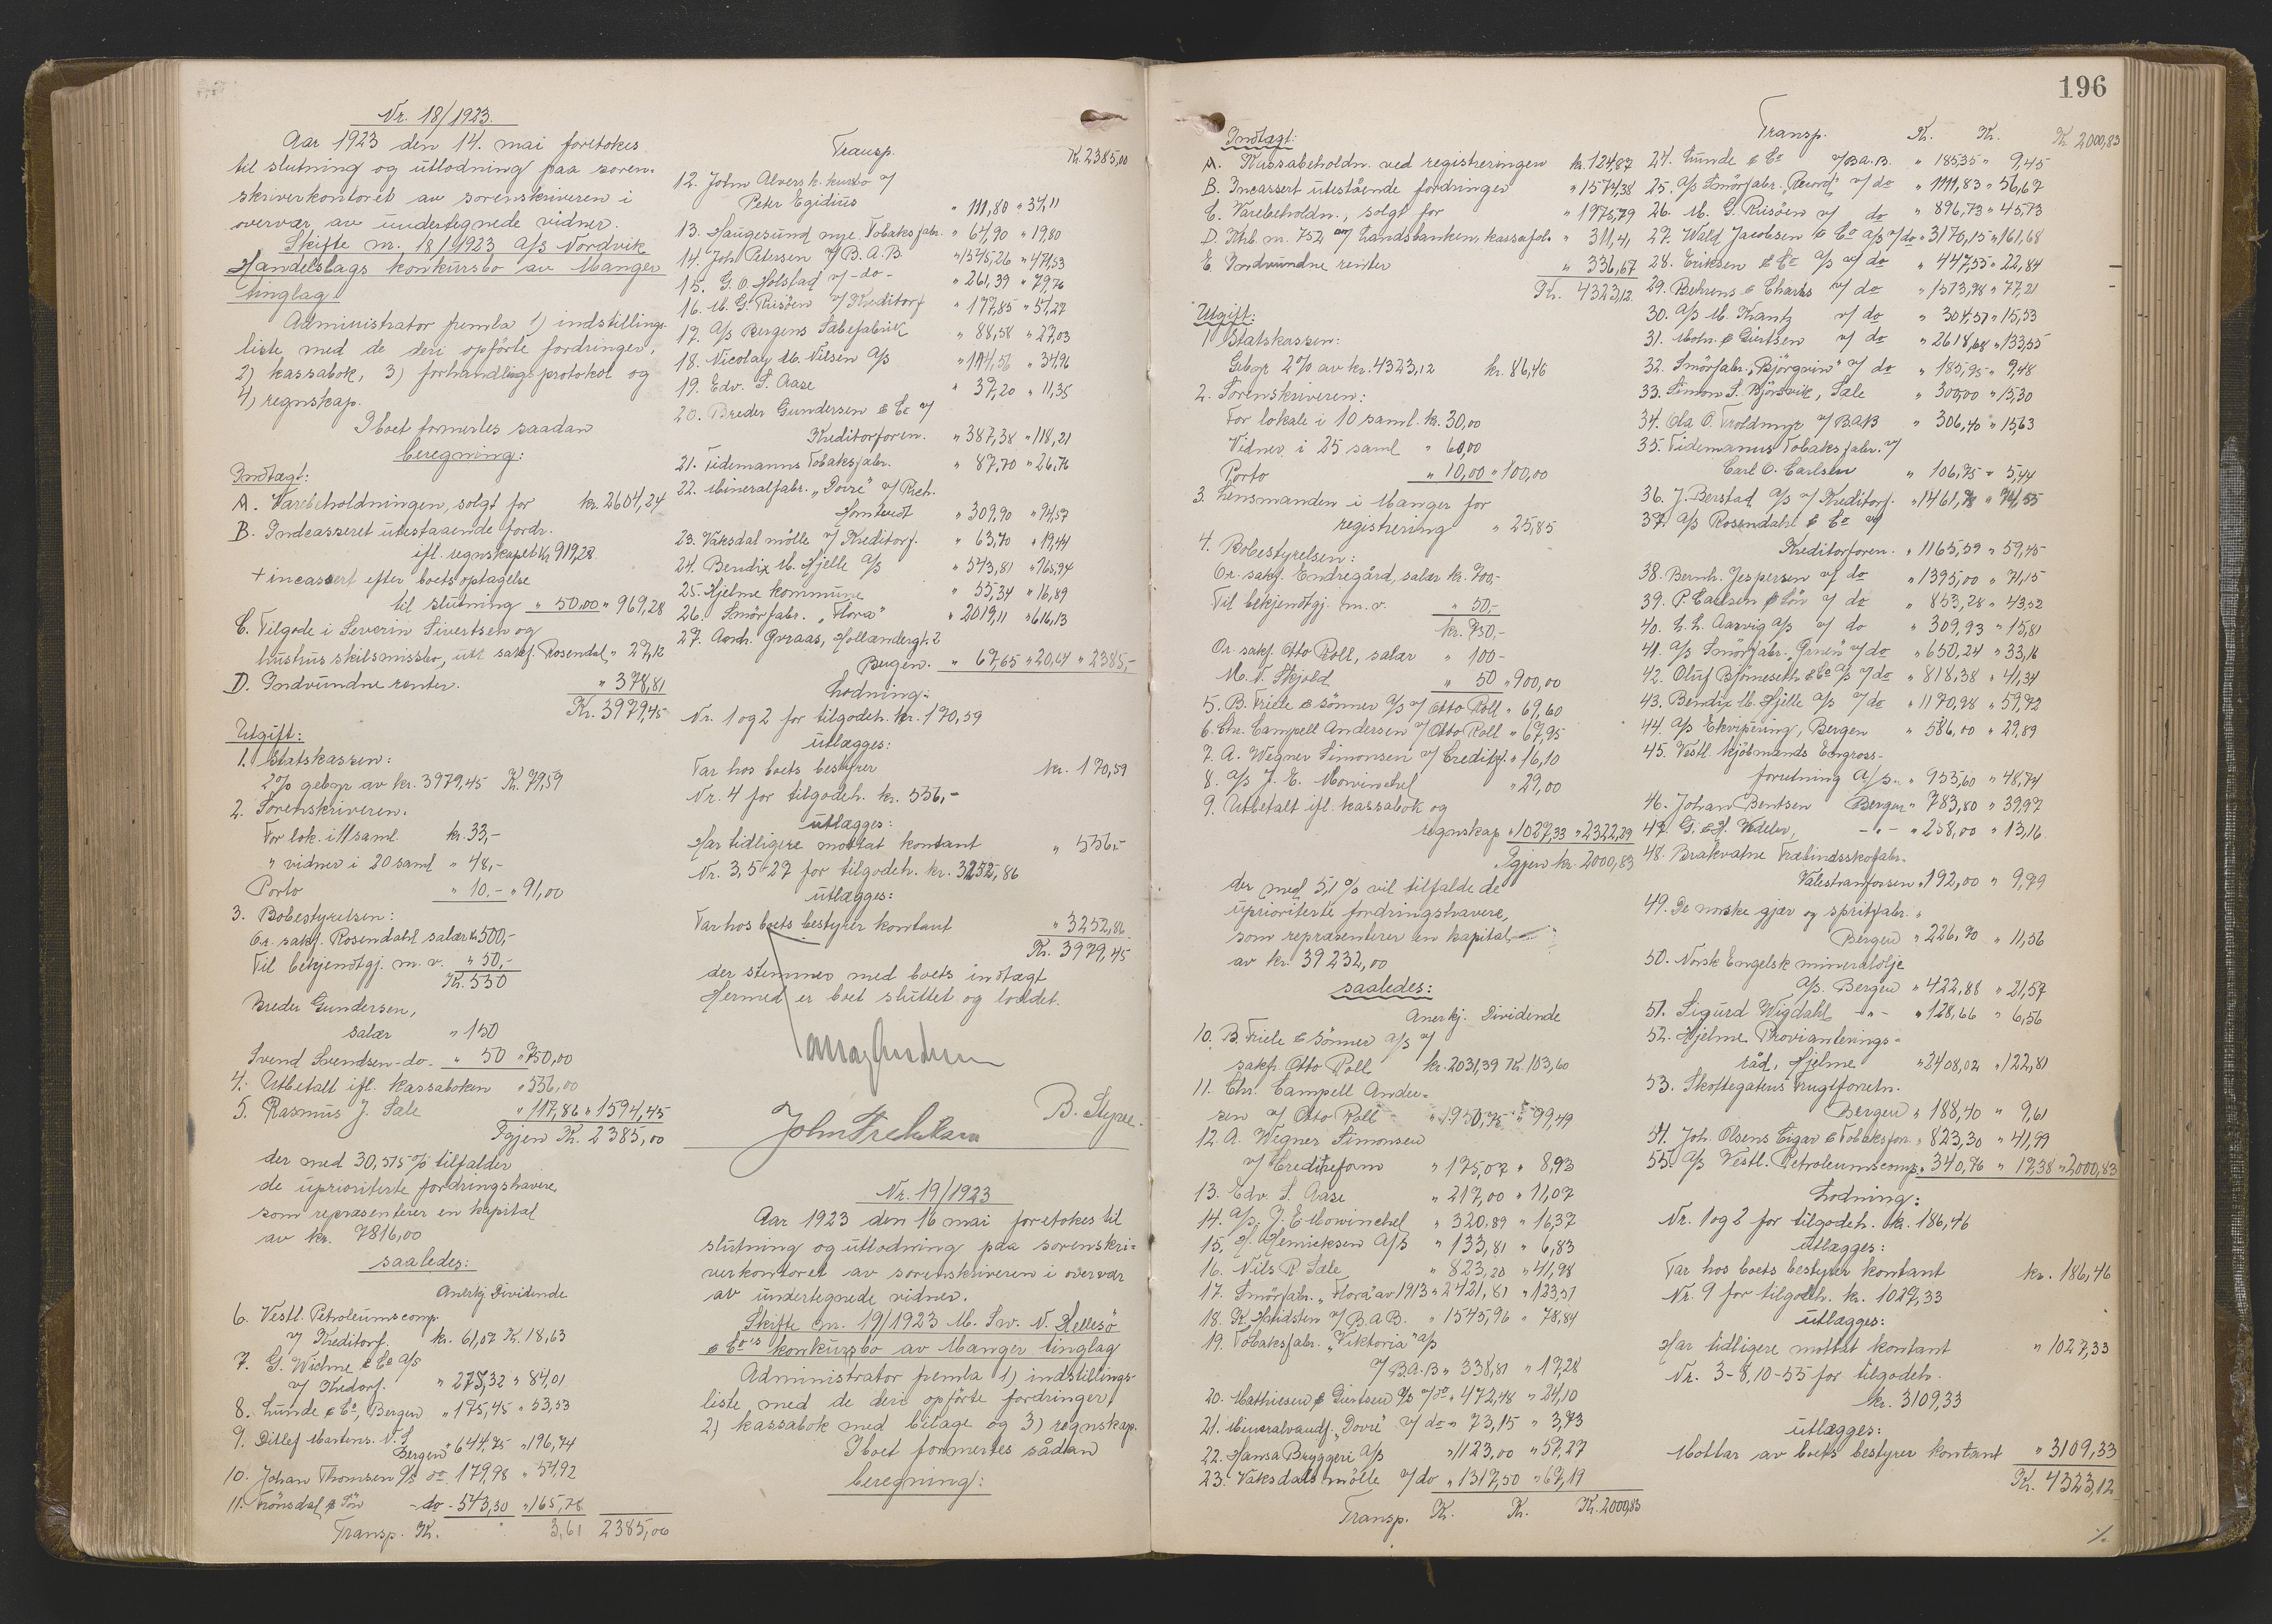 Nr. 18/1923.
Aar 1923 den 14. mai foretokes
til slutning og utlodning paa soren-
skriverkontoret av sorenskriveren i
overvær av undertegnede vidner.
Skifte nr. 18/1923 A/S Nordvik
Handelslags konkursbo av Manger
tinglag.
Administrator femla 1) indstillings-
liste med de deri opførte fordringer,
2) kassabok, 3) forhandlingsprotokol og
4) regnskap.
I boet formertes saadan
beregning:
Indtægt:
A. Varebeholdningen, solgt for kr. 2604,24
B. Indcasseret utestaaende fordr.
ifl. regnskapet kr 919,28
+ incassert efter boets optagelse
til slutning " 50.00 " 969,28
C. Tilgode i Severin Sivertsen og
hustrus skilsmissbo, utl. sakf. Rosendal " 27,12
D. Indvundne renter. " 378,81
Kr. 3979,45
Utgift:
1. Statskassen:
2% gebyr av kr. 3979,45 Kr. 79,59
2. Sorenskriveren.
For lok. i 11 saml. kr. 33,-
" vidner i 20 saml " 48,-
Porto " 10.- " 91,00
3. Bobestyrelsen:
Or. sakf. Rosendahl salær kr. 500,-
Til bekjendtgj. m. v. " 50,-
Kr. 550
Breder Gundersen,
salær " 150
Svend Svendsen - do - " 50 " 750,00
4. Utbetalt ifl. kassaboken " 556,00
5. Rasmus J. Sale " 117,86 " 1594,45
Igjen Kr. 2385,00
der med 30,515 % tilfalder
de uprioriterte fordringshavere,
som repræsenterer en kapital
av kr. 7816,00
saaledes:
Anerkj. Dividende
6. Vestl. Petroleumscomp.
v/ Kreditorf. kr. 61,07 Kr. 18,63
7. G. Wiehne & Co A/S
v/ Kredorf. " 275,32 " 84,01
8. Lunde & Co, Bergen " 175,45 " 53,53
9. Ditlef Martens. V. S.
Bergen " 644,75 " 196,74
10. Johan Thomsen A/S do 179,98 " 54,92
11. Frönsdal & Sön - do - 543,30 " 165,78
Transp. Kr. 3,61 2385,00
Transp. Kr. 2385,00
12. John Alvers k. kurbo v/
Peter Egidius " 111,80 " 34,11
13. Haugesund nye Tobaksfabr. " 64,90 " 19,80
14. Joh Petersen v/ B. A. B " 1545,26 " 471,53
15. G. O. Holstad v/ - do - " 261,39 " 79,76
16. M. G. Risöen v/ Kreditorf " 177,85 " 54,27
17. A/S Bergens Sæbefabrik " 88,58 " 27,03
18. Nicolay M. Nilsen A/S " 114,56 " 34,96
19. Edv. S. Aase " 37,20 " 11,35
20. Breder Gundersen & Co v/
Kreditorforen. " 387,38 " 118,21
21. Tidemanns Tobaksfabr. " 87,70 " 26,76
22. Mineralfabr. "Dovre" v/ Rich.
Homtvedt " 309,90 " 94,57
23. Vaksdal mölle v/ Kreditorf. " 63,70 " 19,44
24. Bendix M. Hjelle A/S " 543,81 " 165,94
25. Hjelme kommune " 55,34 " 16,89
26. Smörfabr. "Flora" " 2019,11 " 616,13
27. Andr. Gvraas, Hollændergt. 2
Bergen. " 67,65 " 20,64 " 2385,-
Lodning:
Nr. 1 og 2 for tilgodeh. kr. 170,59
utlægges:
Tar hos boets bestyrer kr. 170,59
Nr. 4 for tilgodeh. kr. 556,-
utlægges:
Har tidligere mottat kontant " 556,-
Nr. 3, 5-27 for tilgodeh. kr. 3252,86
utlægges:
Tar hos boets bestyrer kontant " 3252,86
Kr. 3979,45
der stemmer med boets indtægt
Hermed er boet sluttet og loddet.
B. Styve.
Nr. 19/1923
Aar 1923 den 16 mai foretokes til
slutning og utlodning paa sorenskri-
verkontoret av sorenskriveren i overvær
av undertegnede vidner.
Skifte nr. 19/1923 M. Sw. N. Hellesö
& Co's konkursbo av Manger tinglag
Administrator femla 1) indstillings-
liste med de deri opførte fordringer,
2) kassabok med bilage og 3) regnskap.
I boet formertes sådan
beregning:
196
Indtægt:
A. Kassabeholdn. ved registreringen kr. 124,87
B. Incassert utestående fordringer " 1574,38
C. Varebeholdn., solgt for " 1975,79
D. Ktrb. nr. 752 av Landsbanken, kassafol. " 311,41
E. Indvundne renter " 336,67
Kr. 4323,12
Utgift:
1 Statskassen:
Gebyr 2% av kr. 4323,12 kr. 86,46
2. Sorenskriveren:
For lokale i 10 saml. kr. 30,00
Vidner i 25 saml " 60,00
Porto " 10,00 " 100,00
3. Lensmanden i Manger for
registrering " 25,85
4. Bobestyrelsen:
Or. sakf. Endregård, salær kr. 700,-
Til bekjendtgj. m. v. " 50,-
kr. 750,-
Or. sakf. Otto Roll, salær " 100-
M. N. Skjold " 50 " 900,00
5. B. Friele & Sönner A/S v/ Otto Roll " 69,60
6. Chr. Campell Andersen v/ Otto Roll " 67,95
7. A. Wegner Simonsen v/ Creditrf. " 16,10
8. A/S J. E. Mowinckel " 29,00
9. Utbetalt ifl. kassabok og
regnskap " 1027,33 " 2322,29
Igjen kr. 2000,83
der med 5,1 % vil tilfalde de
uprioriterte fordringshavere,
som repræsenterer en kapital
av kr. 39232,00
saaledes:
Anerkj. Dividende
10. B. Friele & Sönner A/S v/
sakf. Otto Roll kr. 2031,39 Kr. 103,60
11. Chr. Campell Ander-
sen v/ Otto Roll " 1950,75 " 99,49
12. A. Wegner Simonsen
v/ Creditreform " 175,07 " 8,93
13. Edv. S. Aase " 217,00 " 11,07
14. A/S J. E Mowinckel " 320,89 " 16,37
15. H. Henricksen A/S " 133,81 " 6,83
16. Nils R Sæle " 823,20 " 41,98
17. Smörfabr. "Flora" av 1913 " 2421,81 " 123,51
18. K. Hatidsten v/ B. A. B. " 1545,96 " 78,84
19. Tobaksfabr. "Viktoria" A/S
v/ B. A. B " 338,81 " 17,28
20. Mathiesen & Giertsen A/S v/ do " 472,48 " 24,10
21. Mineralvandf. "Dovre" v/ do " 73,15 " 3,73
22. Hansa Bryggeri A/S " 1123,00 " 57,27
23. Vaksdals mölle v/ do " 1317,50 " 67,19
Transp. Kr. Kr. Kr. 2000,83
Transp. Kr. Kr. Kr. 2000,83
24. Lunde & Co v/ B. A. B. " 185,35 " 9,45
25. A/S Smörfabr. "Record" v/ do " 1111,83 " 56,67
26. M. G. Risöen v/ do " 896,73 " 45,73
27. Wald. Jacobsen & Co A/S v/ do " 3170,15 " 161,68
28. Eriksen & Co A/S v/ do " 447,55 " 22,84
29. Behrens & Charles v/ do " 1513,98 " 77,21
30. A/S M. Krantz v/ do " 304,57 " 15,53
31. Mohn & Giertsen v/ do " 2618,68 " 133,55
32. Smörfabr. "Björgvin" v/ do " 185,95 " 9,48
33. Simon S. Björsvik, Sæle " 300,00 " 15,30
34. Ola O. Troldmyr v/ B.A.B " 306,40 " 15,63
35. Tidemanns Tobaksfabr. v/
Carl O. Carlsen " 106,75 " 5,44
36. J. Berstad A/S v/ Kreditorf. " 1461,78 " 74,55
37. A/S Rosendahl & Co v/
Kreditorforen. " 1165,59 " 59,45
38. Bernh. Jespersen v/ do " 1395,00 " 71,15
39. P. Carlsen & Sön v/ do " 853,28 " 43,52
40. L. L. Aarvig A/S v/ do " 309,93 " 15,81
41. A/S Smörfabr. "Ørnen" v/ do " 650,24 " 33,16
42. Oluf Bjørneseth & Co A/S v/ do " 818,38 " 41,34
43. Bendix M. Hjelle A/S v/ do " 1170,98 " 59,72
44. A/S Ekvipering, Bergen " 586,00 " 29,89
45. Vestl. kjöbmands Engross-
forretning A/S. " 955,60 " 48,74
46. Johan Bentsen Bergen " 783,80 " 39,97
47. G. & H. Vedeler, - " - " 258,00 " 13,16
48. Brakvatne Træbindsskofabr.
Valestrandfossen " 192,00 " 9,79
49. De norske gjær og spritfabr.
Bergen " 226,70 " 11,56
50. Norsk Engelsk mineralolje
A/S. Bergen " 422,88 " 21,57
51. Sigurd Wigdahl - " - " 128,66 " 6,56
52. Hjelme Provianterings-
råd, Hjelme " 2408,02 " 122,81
53. Skottegatens Frugtforretn.
Bergen " 188,40 " 9,61
54. Joh. Olsens Cigar & Tobaksforr. " 823,30 " 41,99
55. A/S Vestl. Petroleumscomp. " 340,76 " 17,38 " 2000,83
Lodning:
Nr. 1 og 2 for tilgodeh. kr. 186,46
utlægges:
Tar hos boets bestyrer kontant kr. 186,46
Nr. 9 for tilgodeh. kr. 1027,33
utlægges:
Har tidligere mottat kontant " 1027,33
Nr. 3-8, 10-55 for tilgodeh.
kr. 3109,33
utlægges:
Mottar av boets bestyrer kontant " 3109,33
Kr. 4323,12